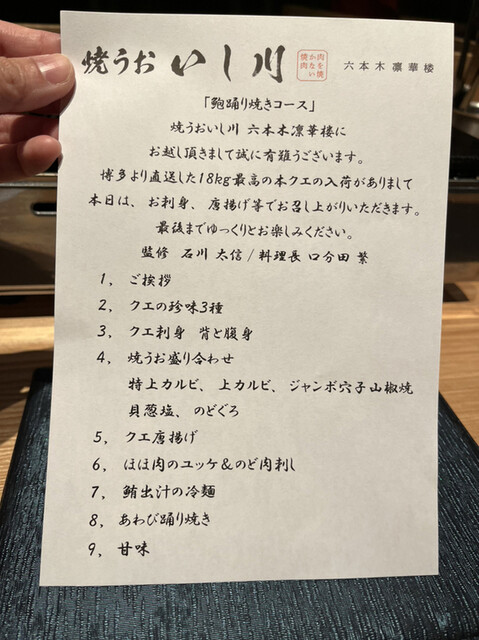 焼うおいし川 肉を焼かない焼肉 六本木凛華楼
「鮑踊り焼きコース」
焼うおいし川 六本木凛華楼に
お越し頂きまして誠に有難うございます。
博多より直送した18kg最高の本クエの入荷がありまして
本日は、お刺身、唐揚げ等でお召し上がりいただきます。
最後までゆっくりとお楽しみください。
監修 石川 太信/料理長 口分田 繁
1, ご挨拶
2, クエの珍味3種
3, クエ刺身 背と腹身
4, 焼うお盛り合わせ
特上カルビ、上カルビ、ジャンボ穴子山椒焼
貝葱塩、のどぐろ
5, クエ唐揚げ
6, ほほ肉のユッケ&のど肉刺し
7, 鮪出汁の冷麺
8, あわび踊り焼き
9, 甘味